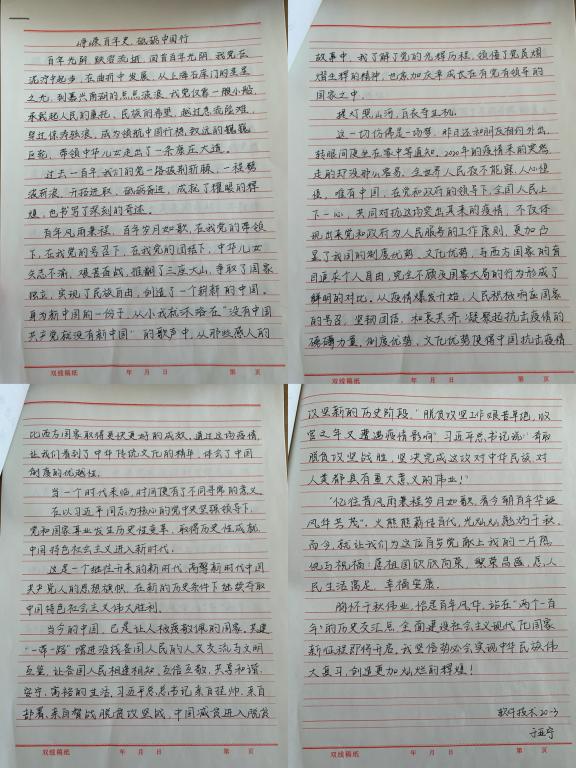 峥嵘百年史，砥砺中国行
百年光阴，跌宕流逝，回首百年光阴，我党在
泥泞中起步，在曲折中发展，从上海石库门的星星
之火，到嘉兴南湖的点点波浪，我党仅靠一艘小船，
承载起人民的重托，民族的希望，越过急流险滩，
穿过惊涛骇浪，成为领航中国行稳致远的巍巍
巨轮，带领中华儿女走出了一条康庄大道。
过去一百年，我们的党一路披荆斩棘，一程劈
波斩浪，开拓进取，砥砺奋进，成就了耀眼的辉
煌，也书写了深刻的奇迹。
百年风雨兼程，百年岁月如歌，在我党的带领
下，在我党的号召下，在我党的团结下，中华儿女
矢志不渝，艰苦奋战，推翻了三座大山，争取了国家
独立，实现了民族自由，创造了一个崭新的中国。
身为新中国的一份子，从小我就沐浴在“没有中国
共产党就没有新中国”的歌声中，从那些感人的
双线稿纸 年 月 日 第 页
故事中，我了解了党的光辉历程，领悟了党员熠
熠生辉的精神，也愈加庆幸成长在有党有领导的
国家之中。
提灯照山河，百木夺生机。
这一切仿佛是一场梦，昨日还相别友相约外出，
转眼间便坐在家中等通知。2020年的疫情来的突然
走的却没那么容易，全世界人民夜不能寐，人心惶
惶，唯有中国，在党和政府的领导下，全国人民上
下一心，共同对抗这场突出其来的疫情，不仅体
现出来党和政府为人民服务的工作原则，更加凸
显了我国的制度优势，文化优势，与西方国家的盲
目追求个人自由，完全不顾及国家大局的行为形成了
鲜明的对比。从疫情爆发开始，人民积极响应国家
的号召，坚韧团结，和衷共济，凝聚起抗击疫情的
磅礴力量，制度优势，文化优势使得中国抗击疫情
双线稿纸 年 月 日 第 页
比西方国家取得更快更好的成效，通过这场疫情，
让我们看到了中华传统文化的精华，体会了中国
制度的优越性。
当一个时代来临，时间便有了不同寻常的意义。
在以习近平同志为核心的党中央坚强领导下，
党和国家事业发生历史性变革，取得历史性成就，
中国特色社会主义进入新时代。
这是一个继往开来的新时代，高擎新时代中国
共产党人的思想旗帜，在新的历史条件下继续夺取
中国特色社会主义伟大胜利。
当今的中国，已是让人极度敬佩的国家。共建
“一带一路”增进沿线各国人民的人文交流与文明
互鉴，让各国人民相逢相知，互信互敬，共享和谐，
安宁，富裕的生活，习近平总书记亲自挂帅，亲自
部署，亲自督战脱贫攻坚战，中国减贫进入脱贫
双线稿纸 年 月 日 第 页
攻坚新的历史阶段，“脱贫攻坚工作艰苦卓绝，收
官之年又遭遇疫情影响”习近平总书记说：“夺取
脱贫攻坚战胜，坚决完成这次对中华民族，对
人类都具有重大意义的伟业！”
“忆往昔风雨兼程岁月如歌，看今朝百年华诞
风华共茂”，火熊熊薪传百代，光灿灿彪炳千秋。
而今，就让我们为这位百岁党献上我的一片热
忱与祝福：愿祖国欣欣向荣，繁荣昌盛，愿人
民生活富足，幸福安康。
胸怀千秋伟业，恰是百年风华，站在“两个一百
年”的历史交汇点，全面建设社会主义现代化国家
新征程即将开启，我坚信势必会实现中华民族伟
大复兴，创造更加灿烂的辉煌！
软件技术20-3
于亚宁
双线稿纸 年 月 日 第 页